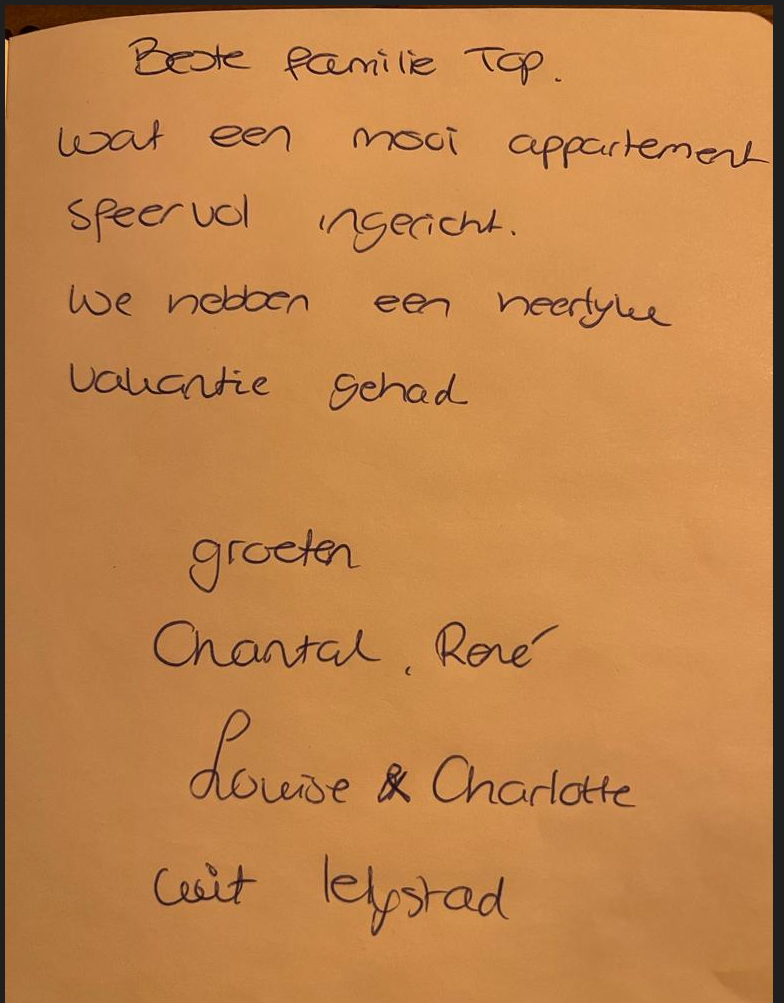 Beste familie Top.
wat een mooi appartement
sfeervol ingericht.
We hebben een heerlyke
vakantie gehad
groeten
Chantal, René
Louise & Charlotte
uit lelystad